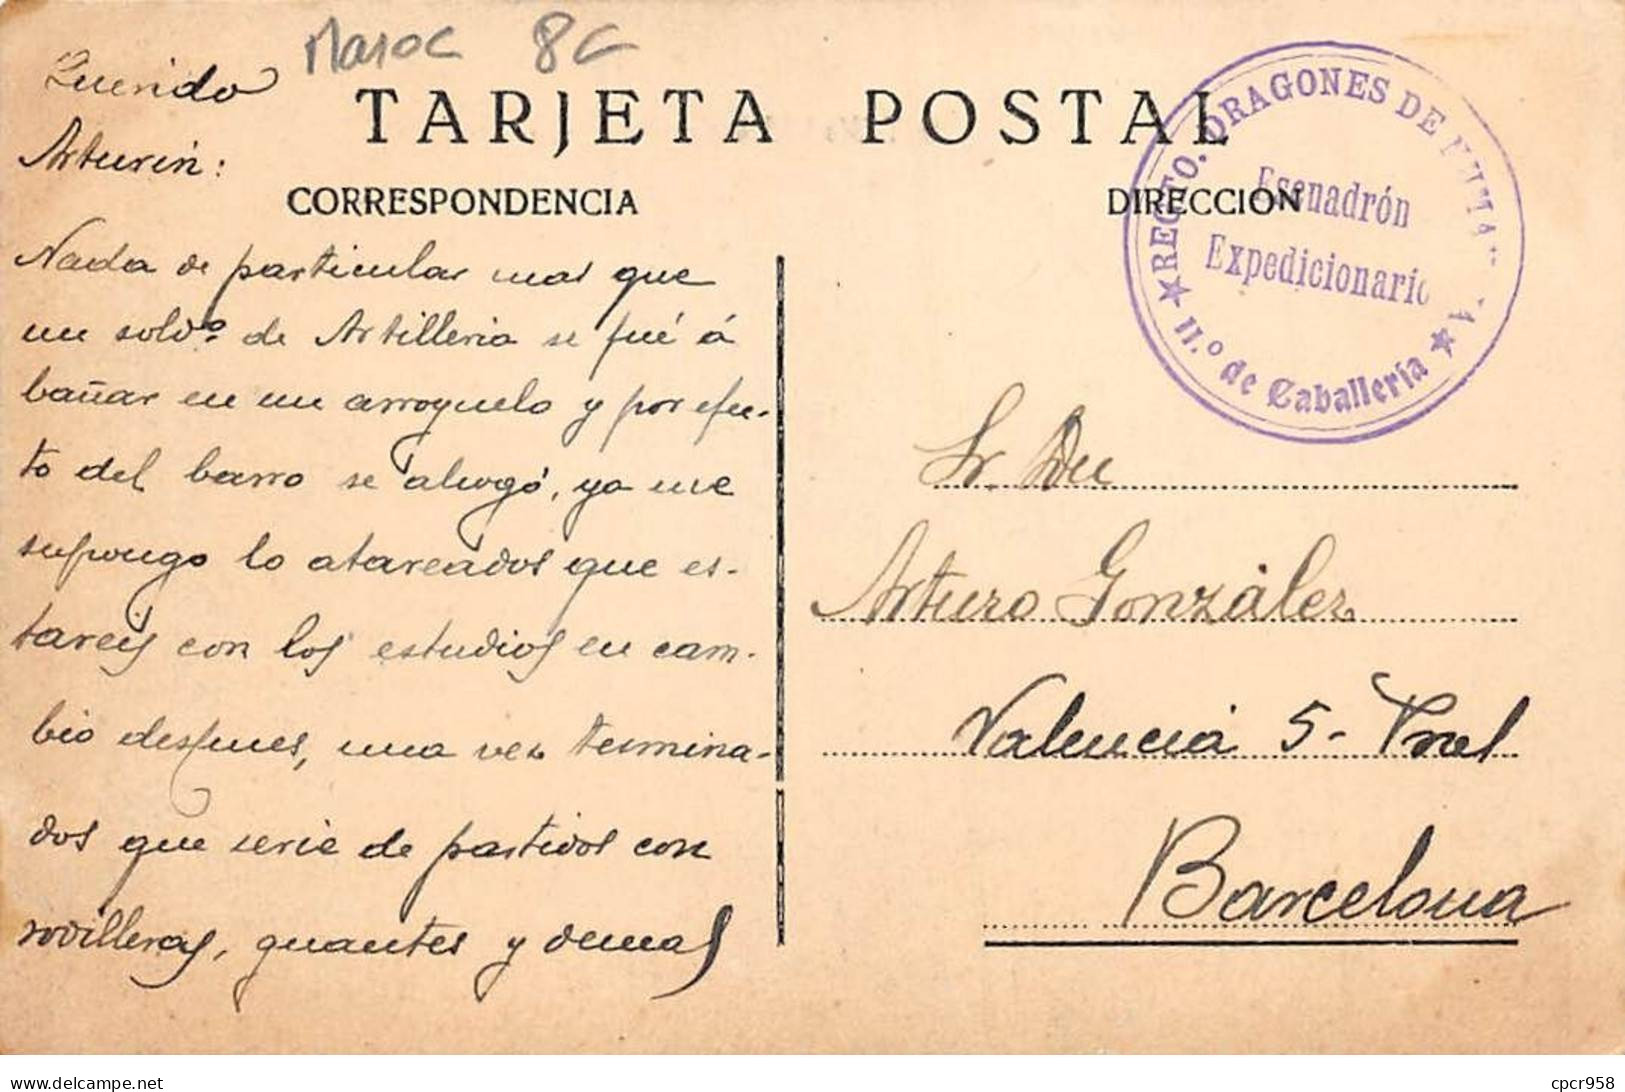 Maroc 8c
TARJETA POSTAL
CORRESPONDENCIA
DIRECCIÓN
Querido
Arturin:
Nada de particular mas que
un soldo. de Artilleria se fué á
bañar en un arroyuelo y por efec-
to del barro se ahogó, ya me
supongo lo atareados que es-
tareis con los estudios en cam-
bio despues, una vez termina-
dos que serie de partidos con
rodilleras, guantes y demas
REGTO. DRAGONES DE
Escuadrón
Expedicionario
★ 11.º de Caballería ★
Sr. Dn
Arturo González
Valencia 5- Pral
Barcelona
cpcr958